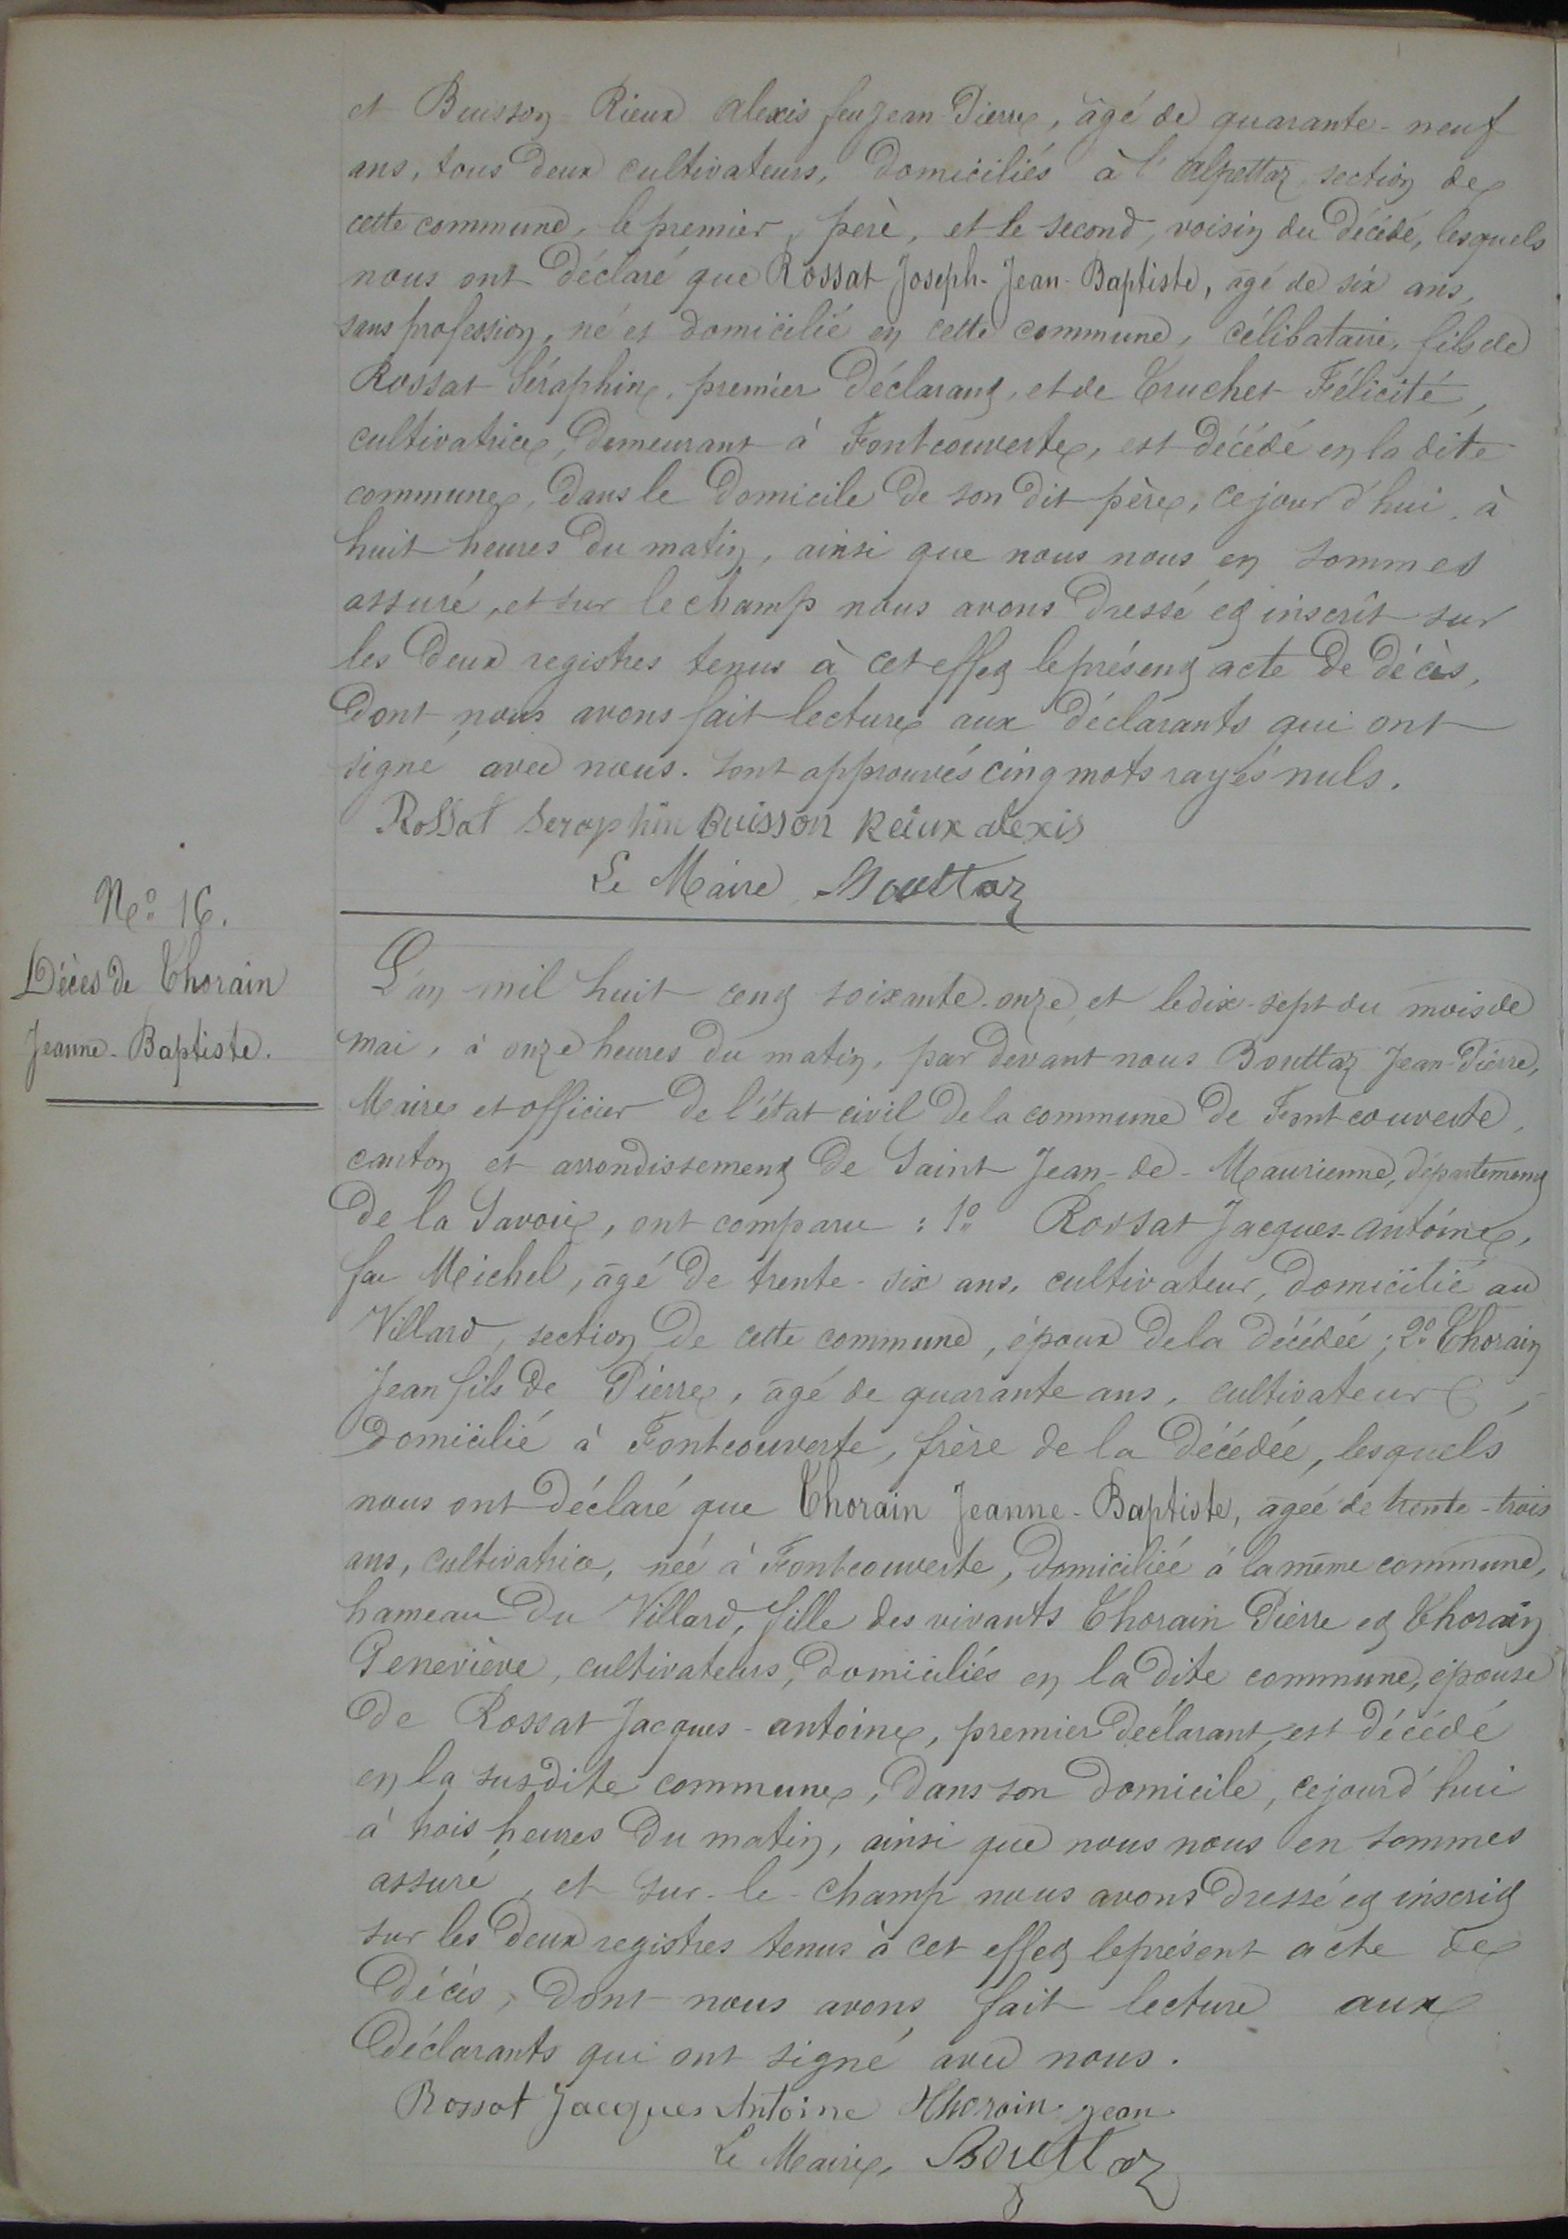 et Buisson-Rieux Alexis feu Jean-Pierre, âgé de quarante-neuf
ans, tous deux cultivateurs, domiciliés à l'Alpettaz, section de
cette commune, le premier, père, et le second, voisin du décédé, lesquels
nous ont déclaré que Rossat Joseph-Jean-Baptiste, âgé de six ans,
sans profession, né et domicilié en cette commune, célibataire, fils de
Rossat Séraphin, premier déclarant, et de Truchet Félicité,
cultivatrice, demeurant à Fontcouverte, est décédé en la dite
commune, dans le domicile de son dit père, cejourd'hui, à
huit heures du matin, ainsi que nous nous en sommes
assuré, et sur le champ nous avons dressé et inscrit sur
les deux registres tenus à cet effet le présent acte de décès,
dont nous avons fait lecture aux déclarants qui ont
signé avec nous. Sont approuvés cinq mots rayés nuls.
Rossat Seraphin Buisson Reiux alexis
Le Maire, Bouttaz
N.o 16.
Décès de Thorain
Jeanne-Baptiste.
L'an mil huit cent soixante-onze, et le dix-sept du mois de
mai, à onze heures du matin, par devant nous Bouttaz Jean-Pierre,
Maire et officier de l'état civil de la commune de Fontcouverte,
canton et arrondissement de Saint Jean-de-Maurienne, département
de la Savoie, ont comparu : 1o Rossat Jacques-Antoine,
feu Michel, âgé de trente-six ans, cultivateur, domicilié au
Villard, section de cette commune, époux de la décédée ; 2o Thorain
Jean fils de Pierre, âgé de quarante ans, cultivateur,
domicilié à Fontcouverte, frère de la décédée, lesquels
nous ont déclaré que Thorain Jeanne-Baptiste, âgée de trente-trois
ans, cultivatrice, née à Fontcouverte, domiciliée à la même commune,
hameau du Villard, fille des vivants Thorain Pierre et Thorain
Geneviève, cultivateurs, domiciliés en la dite commune, épouse
de Rossat Jacques-Antoine, premier déclarant, est décédé
en la susdite commune, dans son domicile, cejourd'hui
à trois heures du matin, ainsi que nous nous en sommes
assuré, et sur-le-champ nous avons dressé et inscrit
sur les deux registres tenus à cet effet le présent acte de
décès, dont nous avons fait lecture aux
déclarants qui ont signé avec nous.
Rossat Jacques Antoine Thorain jean
Le Maire, Bouttaz